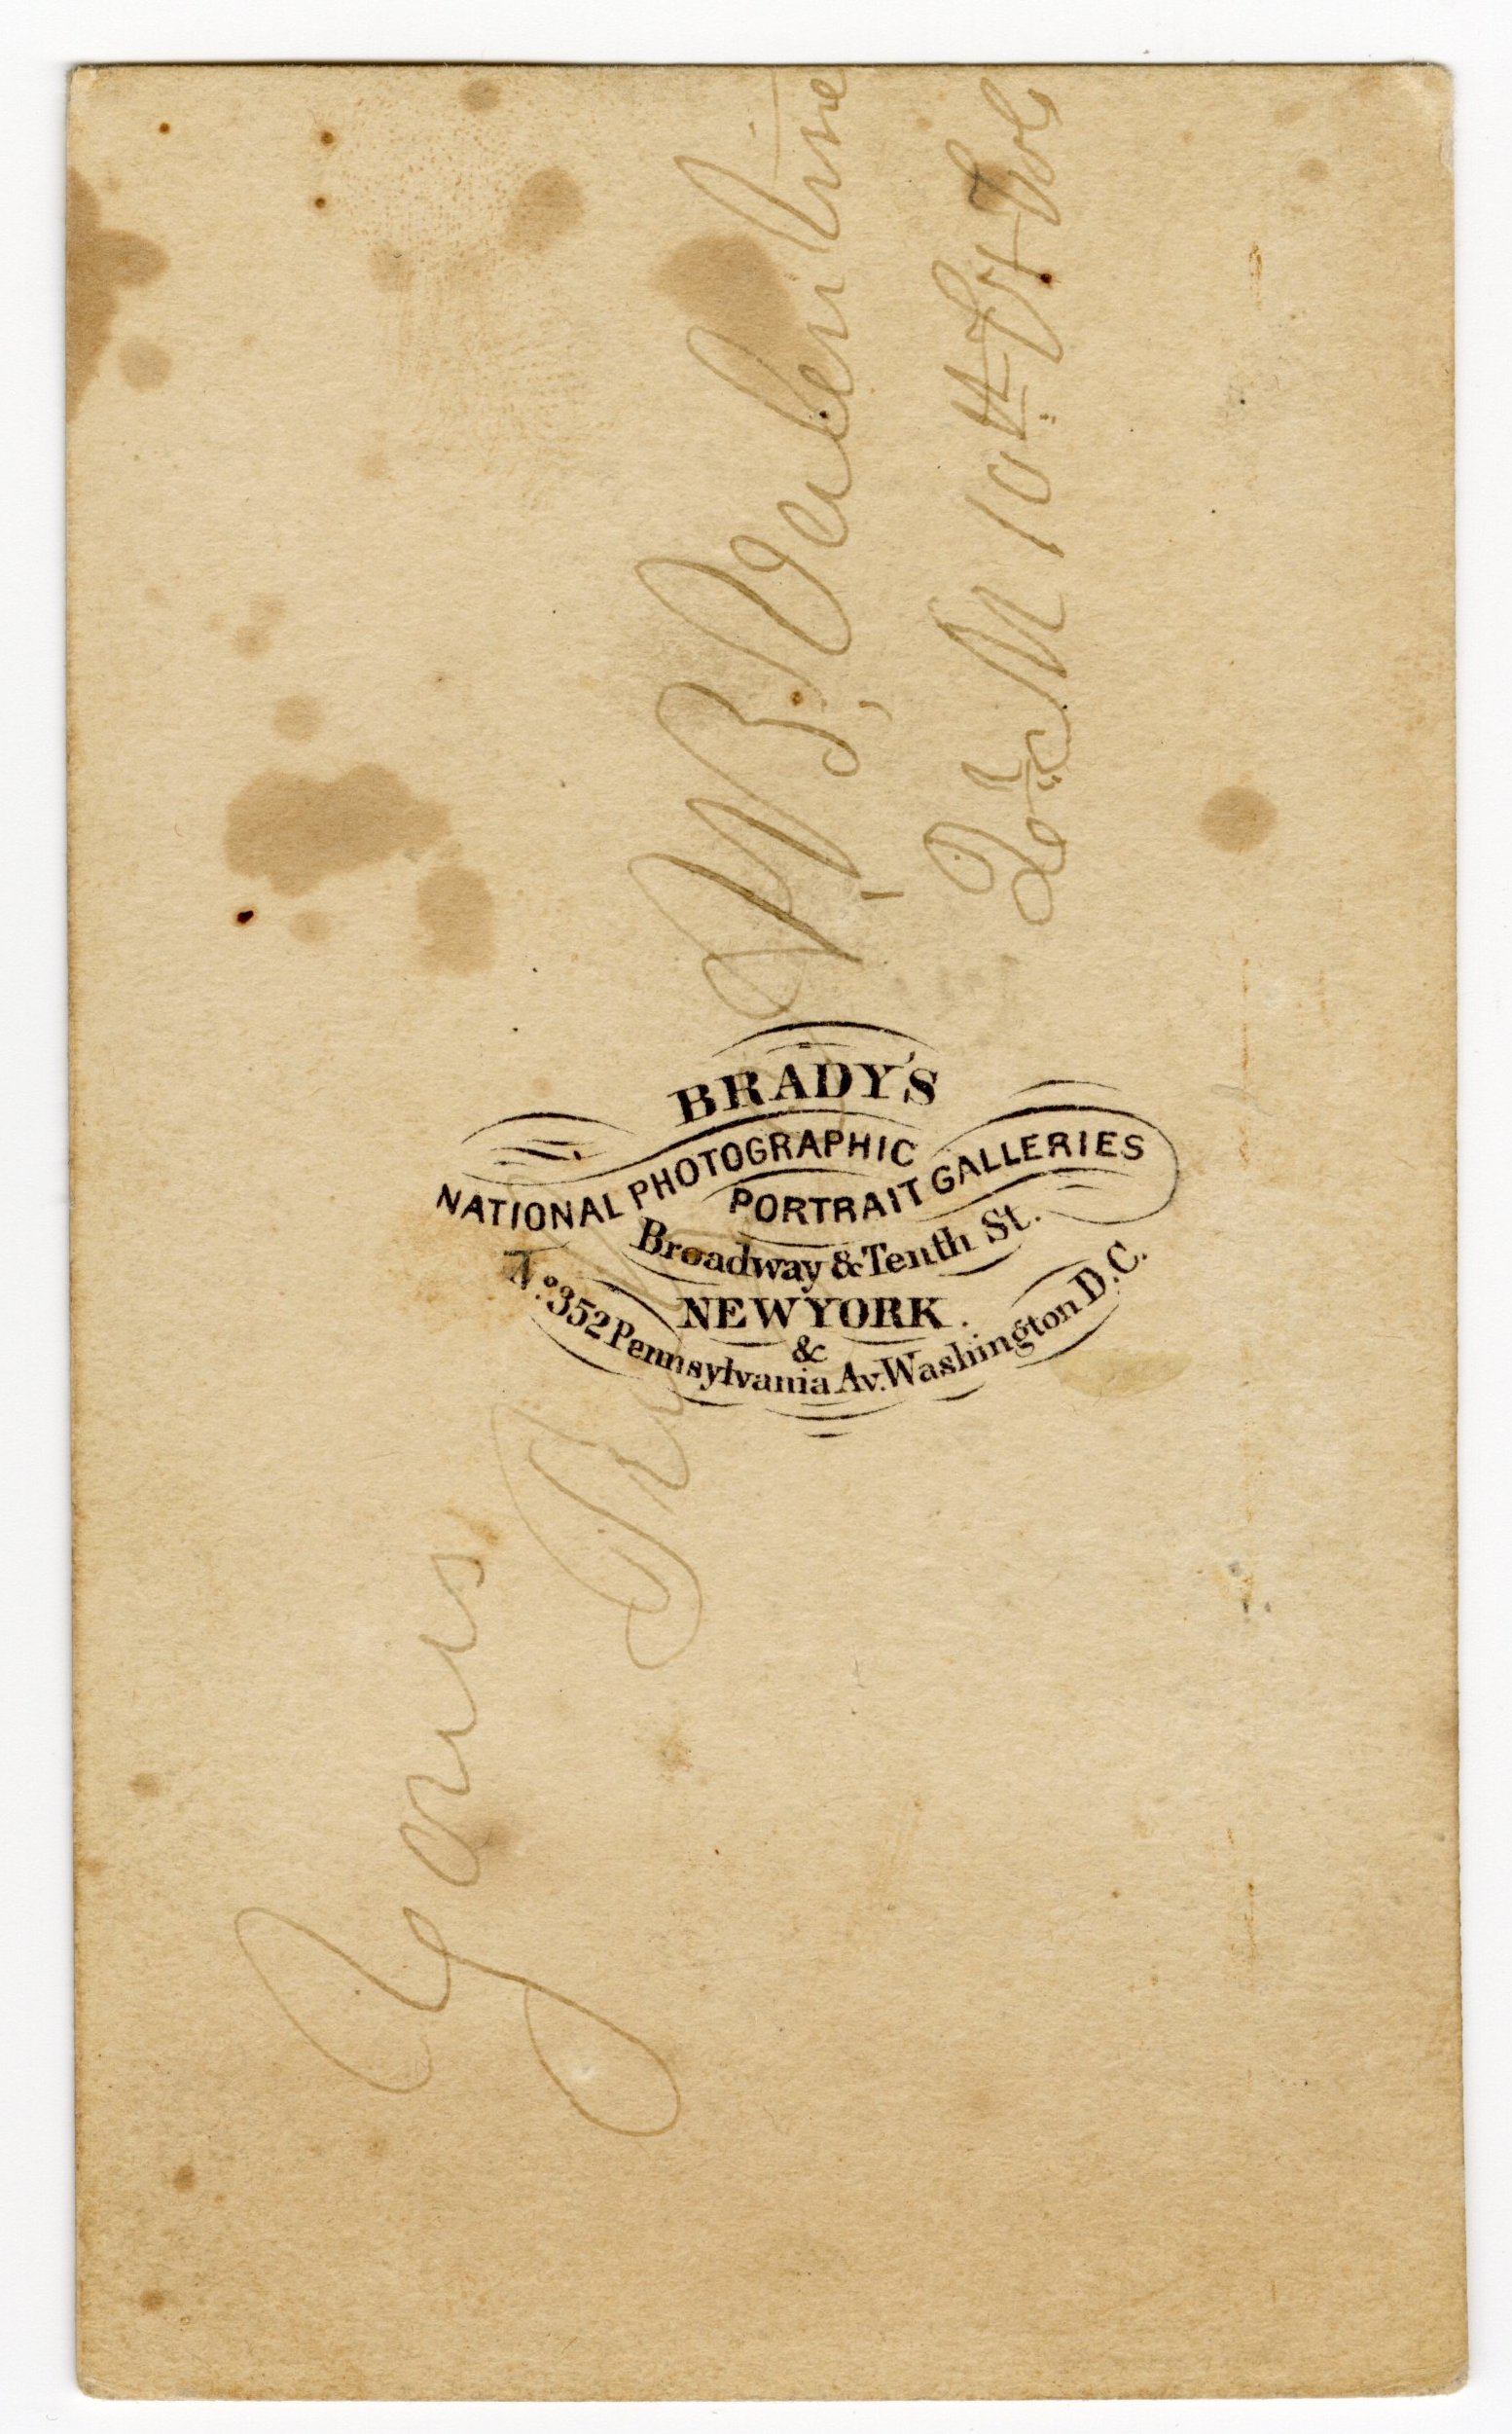 Yours Truly
W. B. Valentine
Q. M 10th N.Y. Vol
BRADY'S
NATIONAL PHOTOGRAPHIC
PORTRAIT GALLERIES
Broadway & Tenth St.
NEW YORK.
&
No. 352 Pennsylvania Av. Washington D.C.